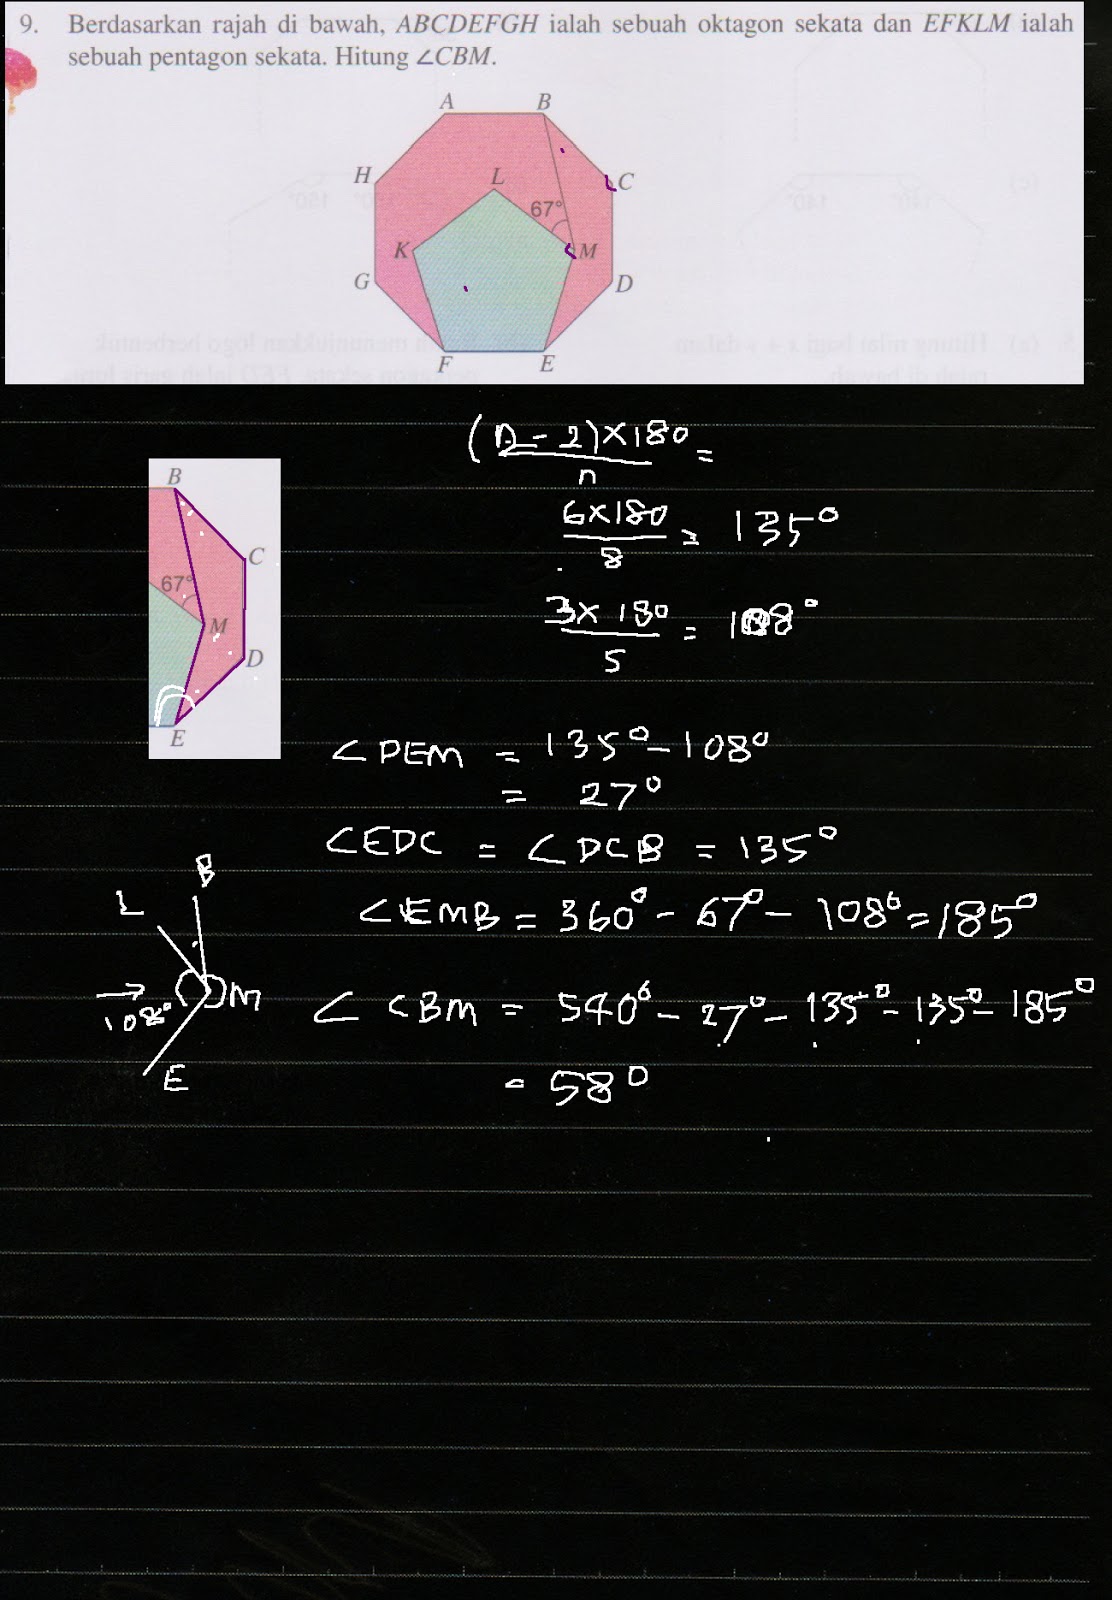 9. Berdasarkan rajah di bawah, ABCDEFGH ialah sebuah oktagon sekata dan EFKLM ialah
sebuah pentagon sekata. Hitung ∠CBM.
A B
H L C
67°
K M
G D
F E
(n - 2) × 180 =
n
6 × 180 = 135°
8
3 × 180 = 108°
5
B
C
67°
M
D
E
∠DEM = 135° - 108°
= 27°
∠EDC = ∠DCB = 135°
∠EMB = 360° - 67° - 108° = 185°
B
L
M
108°
E
∠CBM = 540° - 27° - 135° - 135° - 185°
= 58°